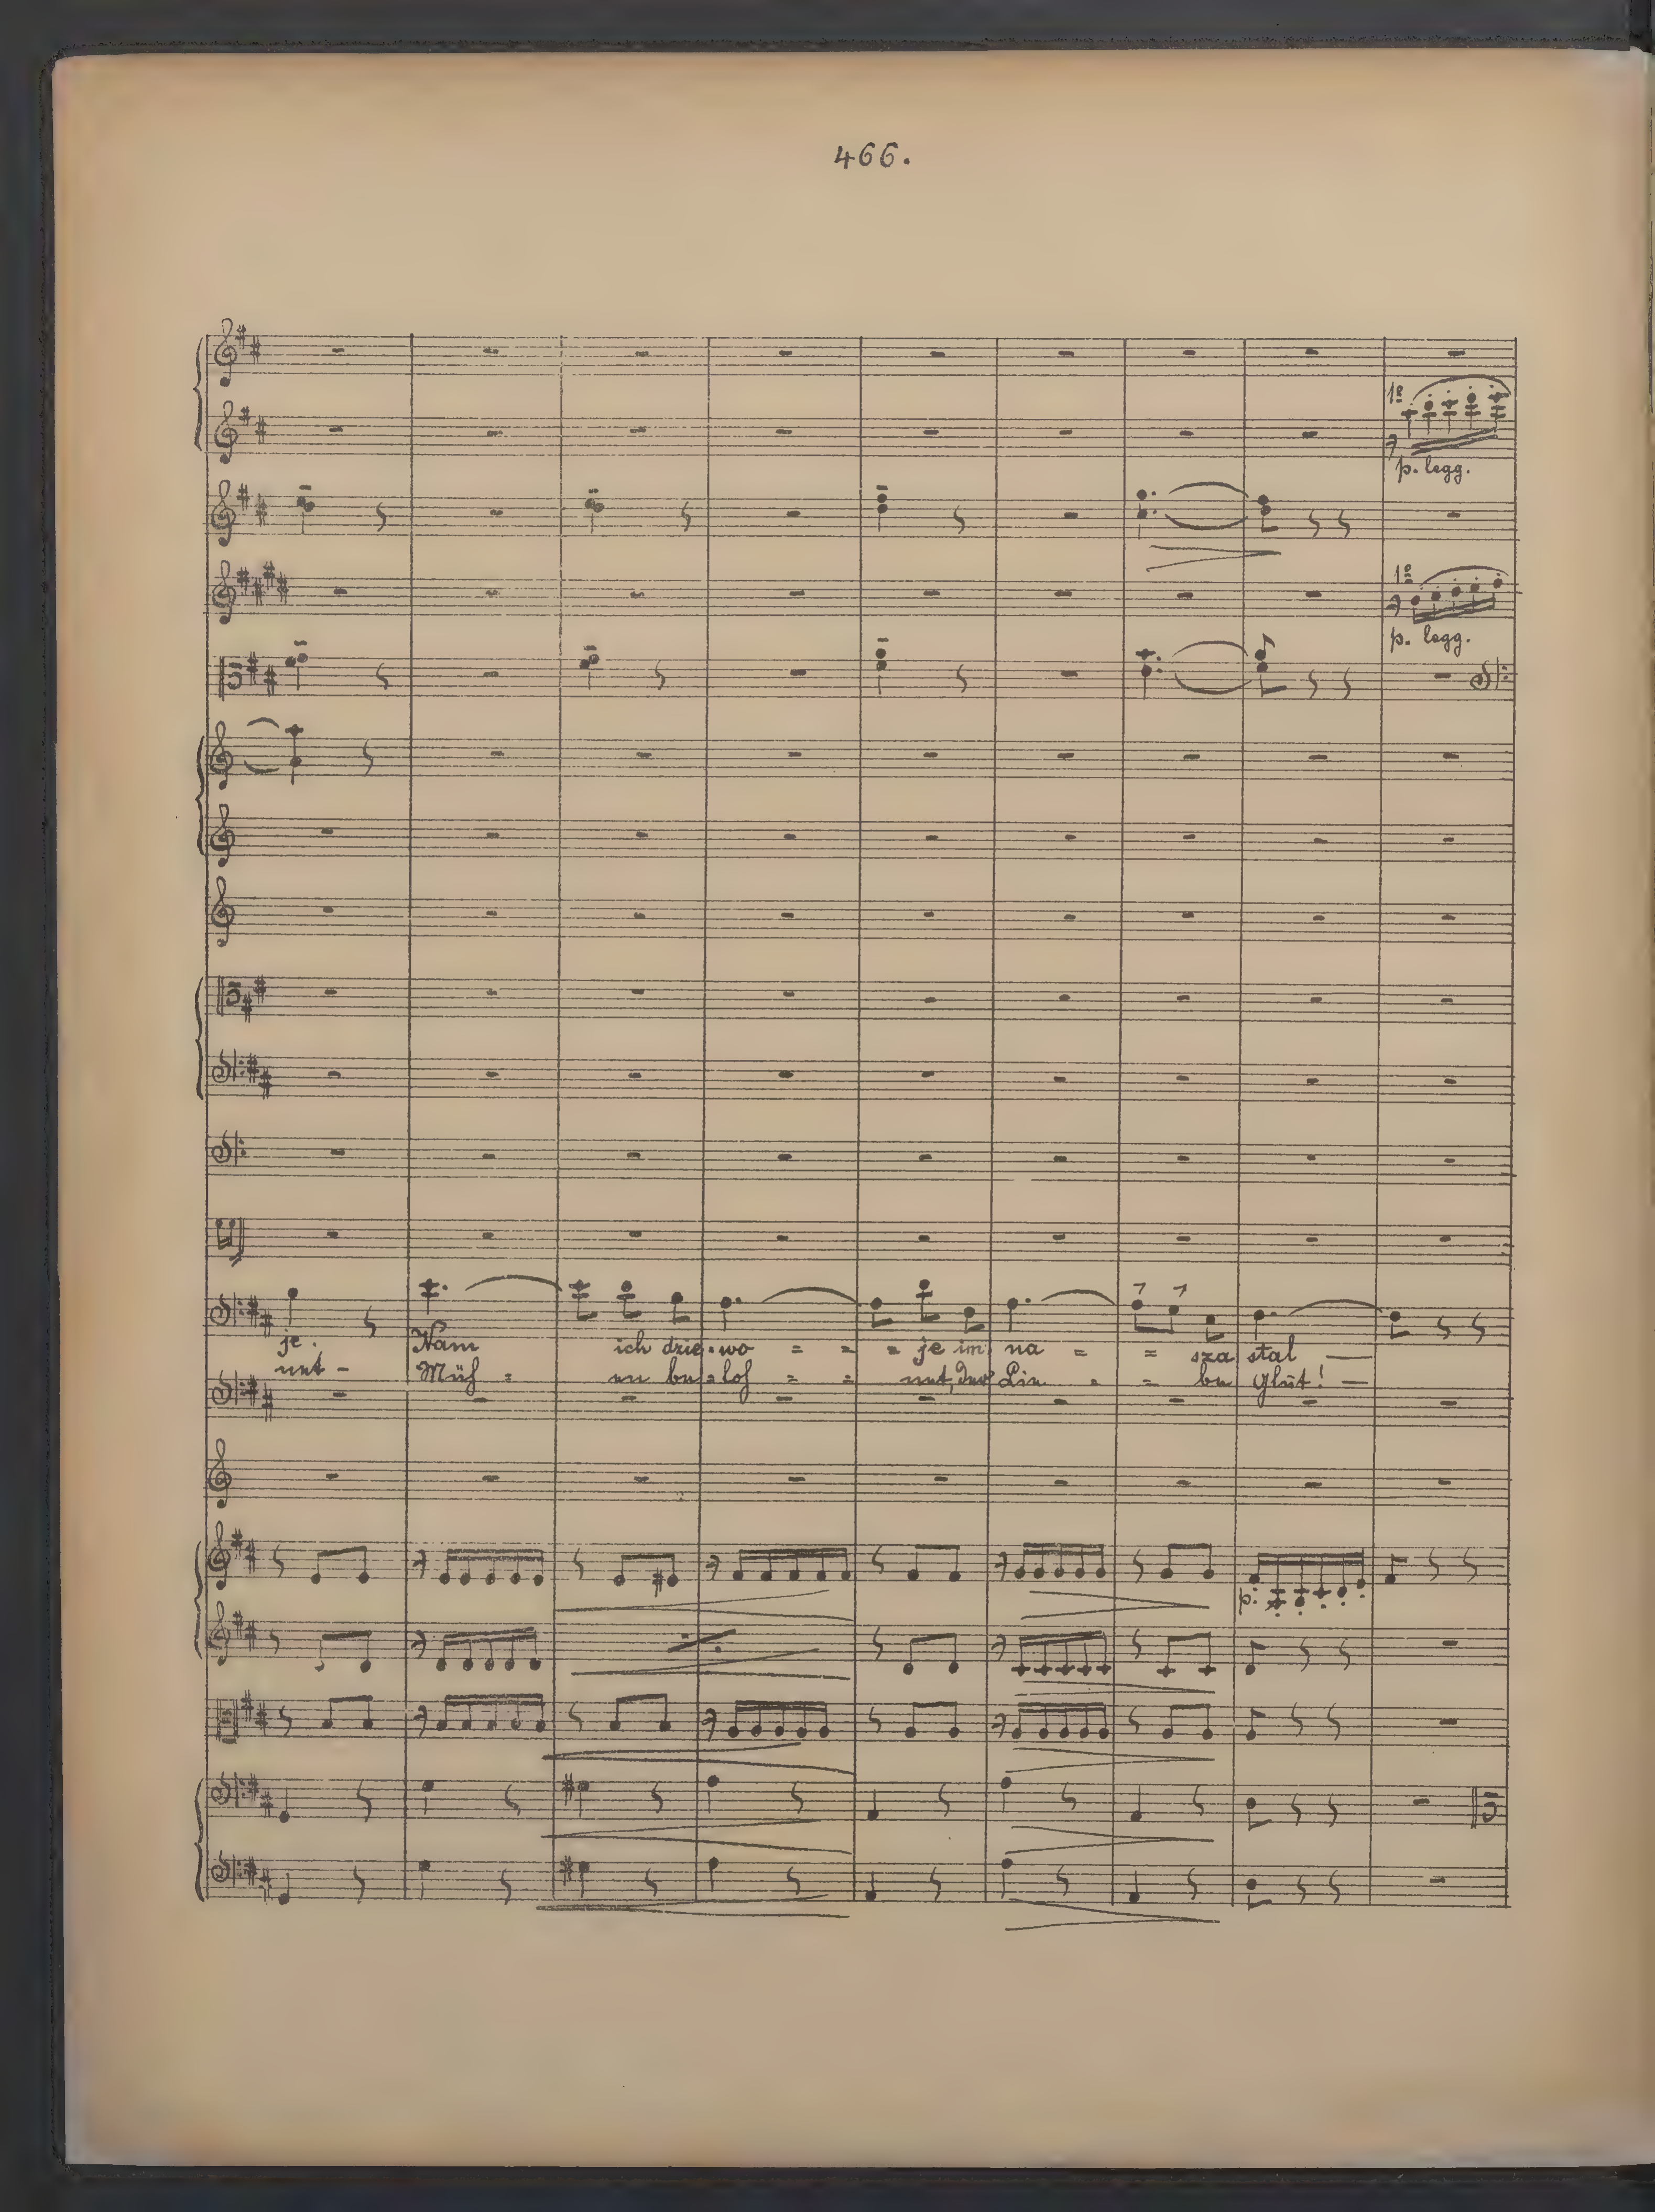 466.
1º
p. legg.
1º
p. legg.
je. Nam ich drze = wo = = = je im na = = sza stal —
net - Müh = en be = loh = = net, der Lie = = be Glut! —
p.